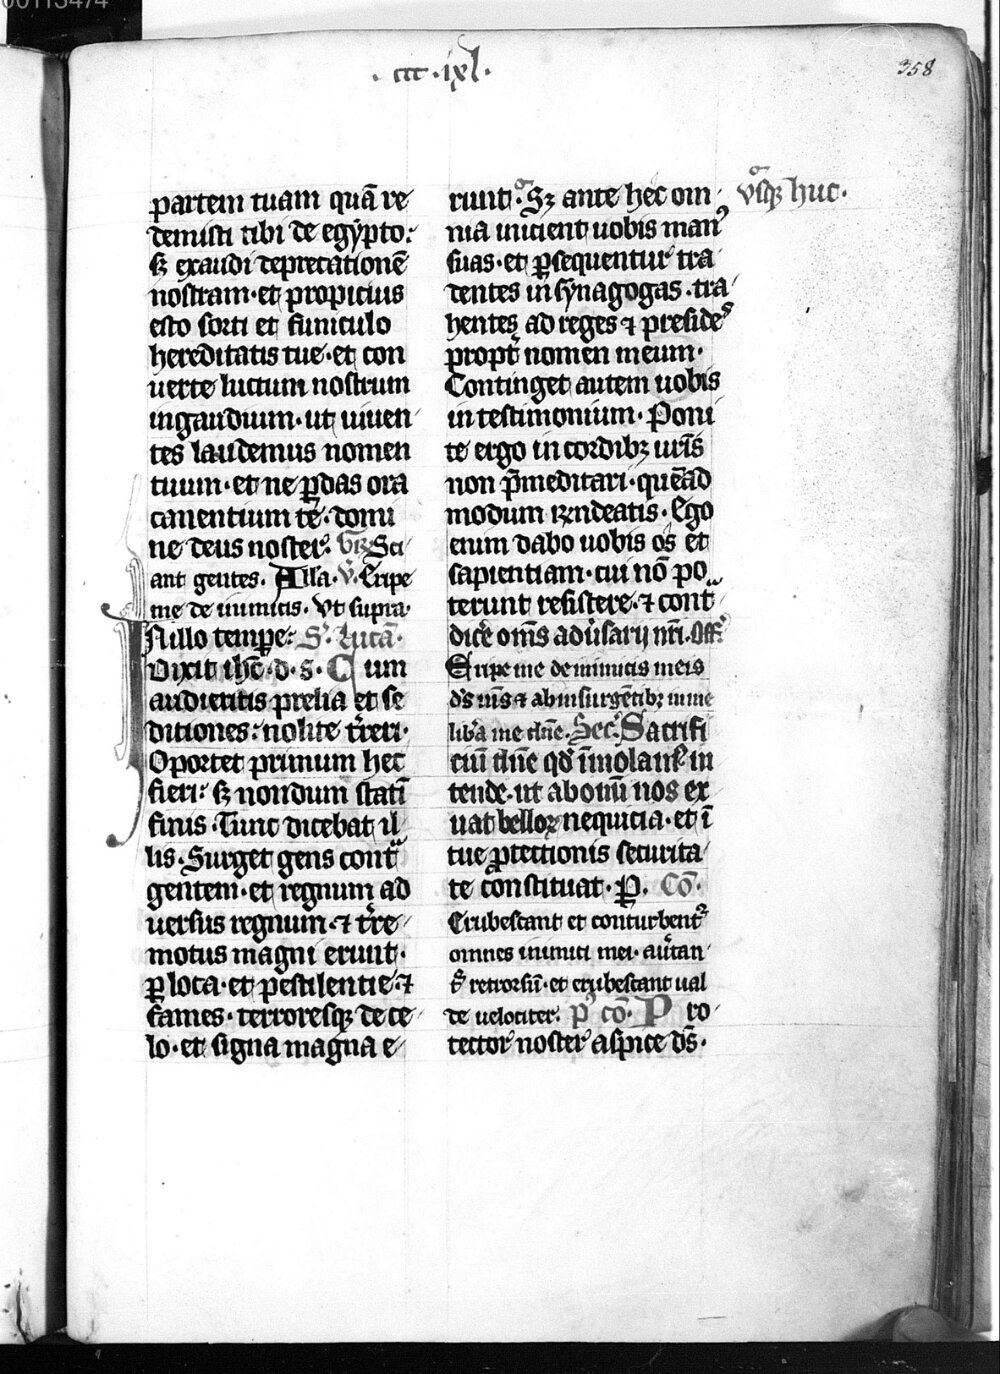 00113474
· ccc · ixl ·
358
partem tuam quā re
demisti tibi de egypto:
sꝫ exaudi deprecationē
nostram · et propicius
esto sorti et funiculo
hereditatis tue · et con
uerte luctum nostrum
in gaudium · ut uiuen
tes laudemus nomen
tuum · et ne ꝑdas ora
canentium te · domi
ne deus noster. Gr̄. Sci
ant gentes. Alla. V̄. Eripe
me de inimicis. Vt supra.
In illo tempe: S. Lucā.
Dixit ihc̄ · d · s · Cum
audieritis prelia et se
ditiones: nolite tr̄reri ·
Oportet primum hec
fieri: sꝫ nondum statī
finis · Tunc dicebat il
lis · Surget gens cont
gentem · et regnum ad
uersus regnum · ⁊ tr̄re
motus magni erunt ·
ꝑ loca · et pestilentie ⁊
fames · terroresqꝫ de ce
lo · et signa magna e
runt · Sꝫ ante hec om
nia inicient uobis man᷒
suas · et ꝑsequentur tra
dentes in synagogas · tra
hentes ad reges ⁊ preside᷒
propt̄ nomen meum ·
Continget autem uobis
in testimonium · Poni
te ergo in cordibꝫ ur̄is
non p̄meditari · quēad
modum rn̄deatis · Ego
enim dabo uobis os et
sapientiam · cui nō po
terunt resistere · ⁊ cont
dicē om̄s aduersarij nr̄i. Off.
Eripe me de inimicis meis
ds̄ ms̄ ⁊ ab insurgētibꝫ in me
liba me dn̄e. Sec. Sacrifi
ciū dn̄e qd̄ īmolam᷒ in
tende · ut a bonū nos ex
uat belloꝝ nequicia · et ī
tue ꝓtectionis securita
te constituat · P. Cō.
Erubescant et conturbent᷒
omnes inimici mei · auꝰtan
t᷒ retrorsū · et erubescant ual
de uelociter. p᷒ cō. Pro
tector noster aspice ds̄ ·
vsqꝫ huc ·